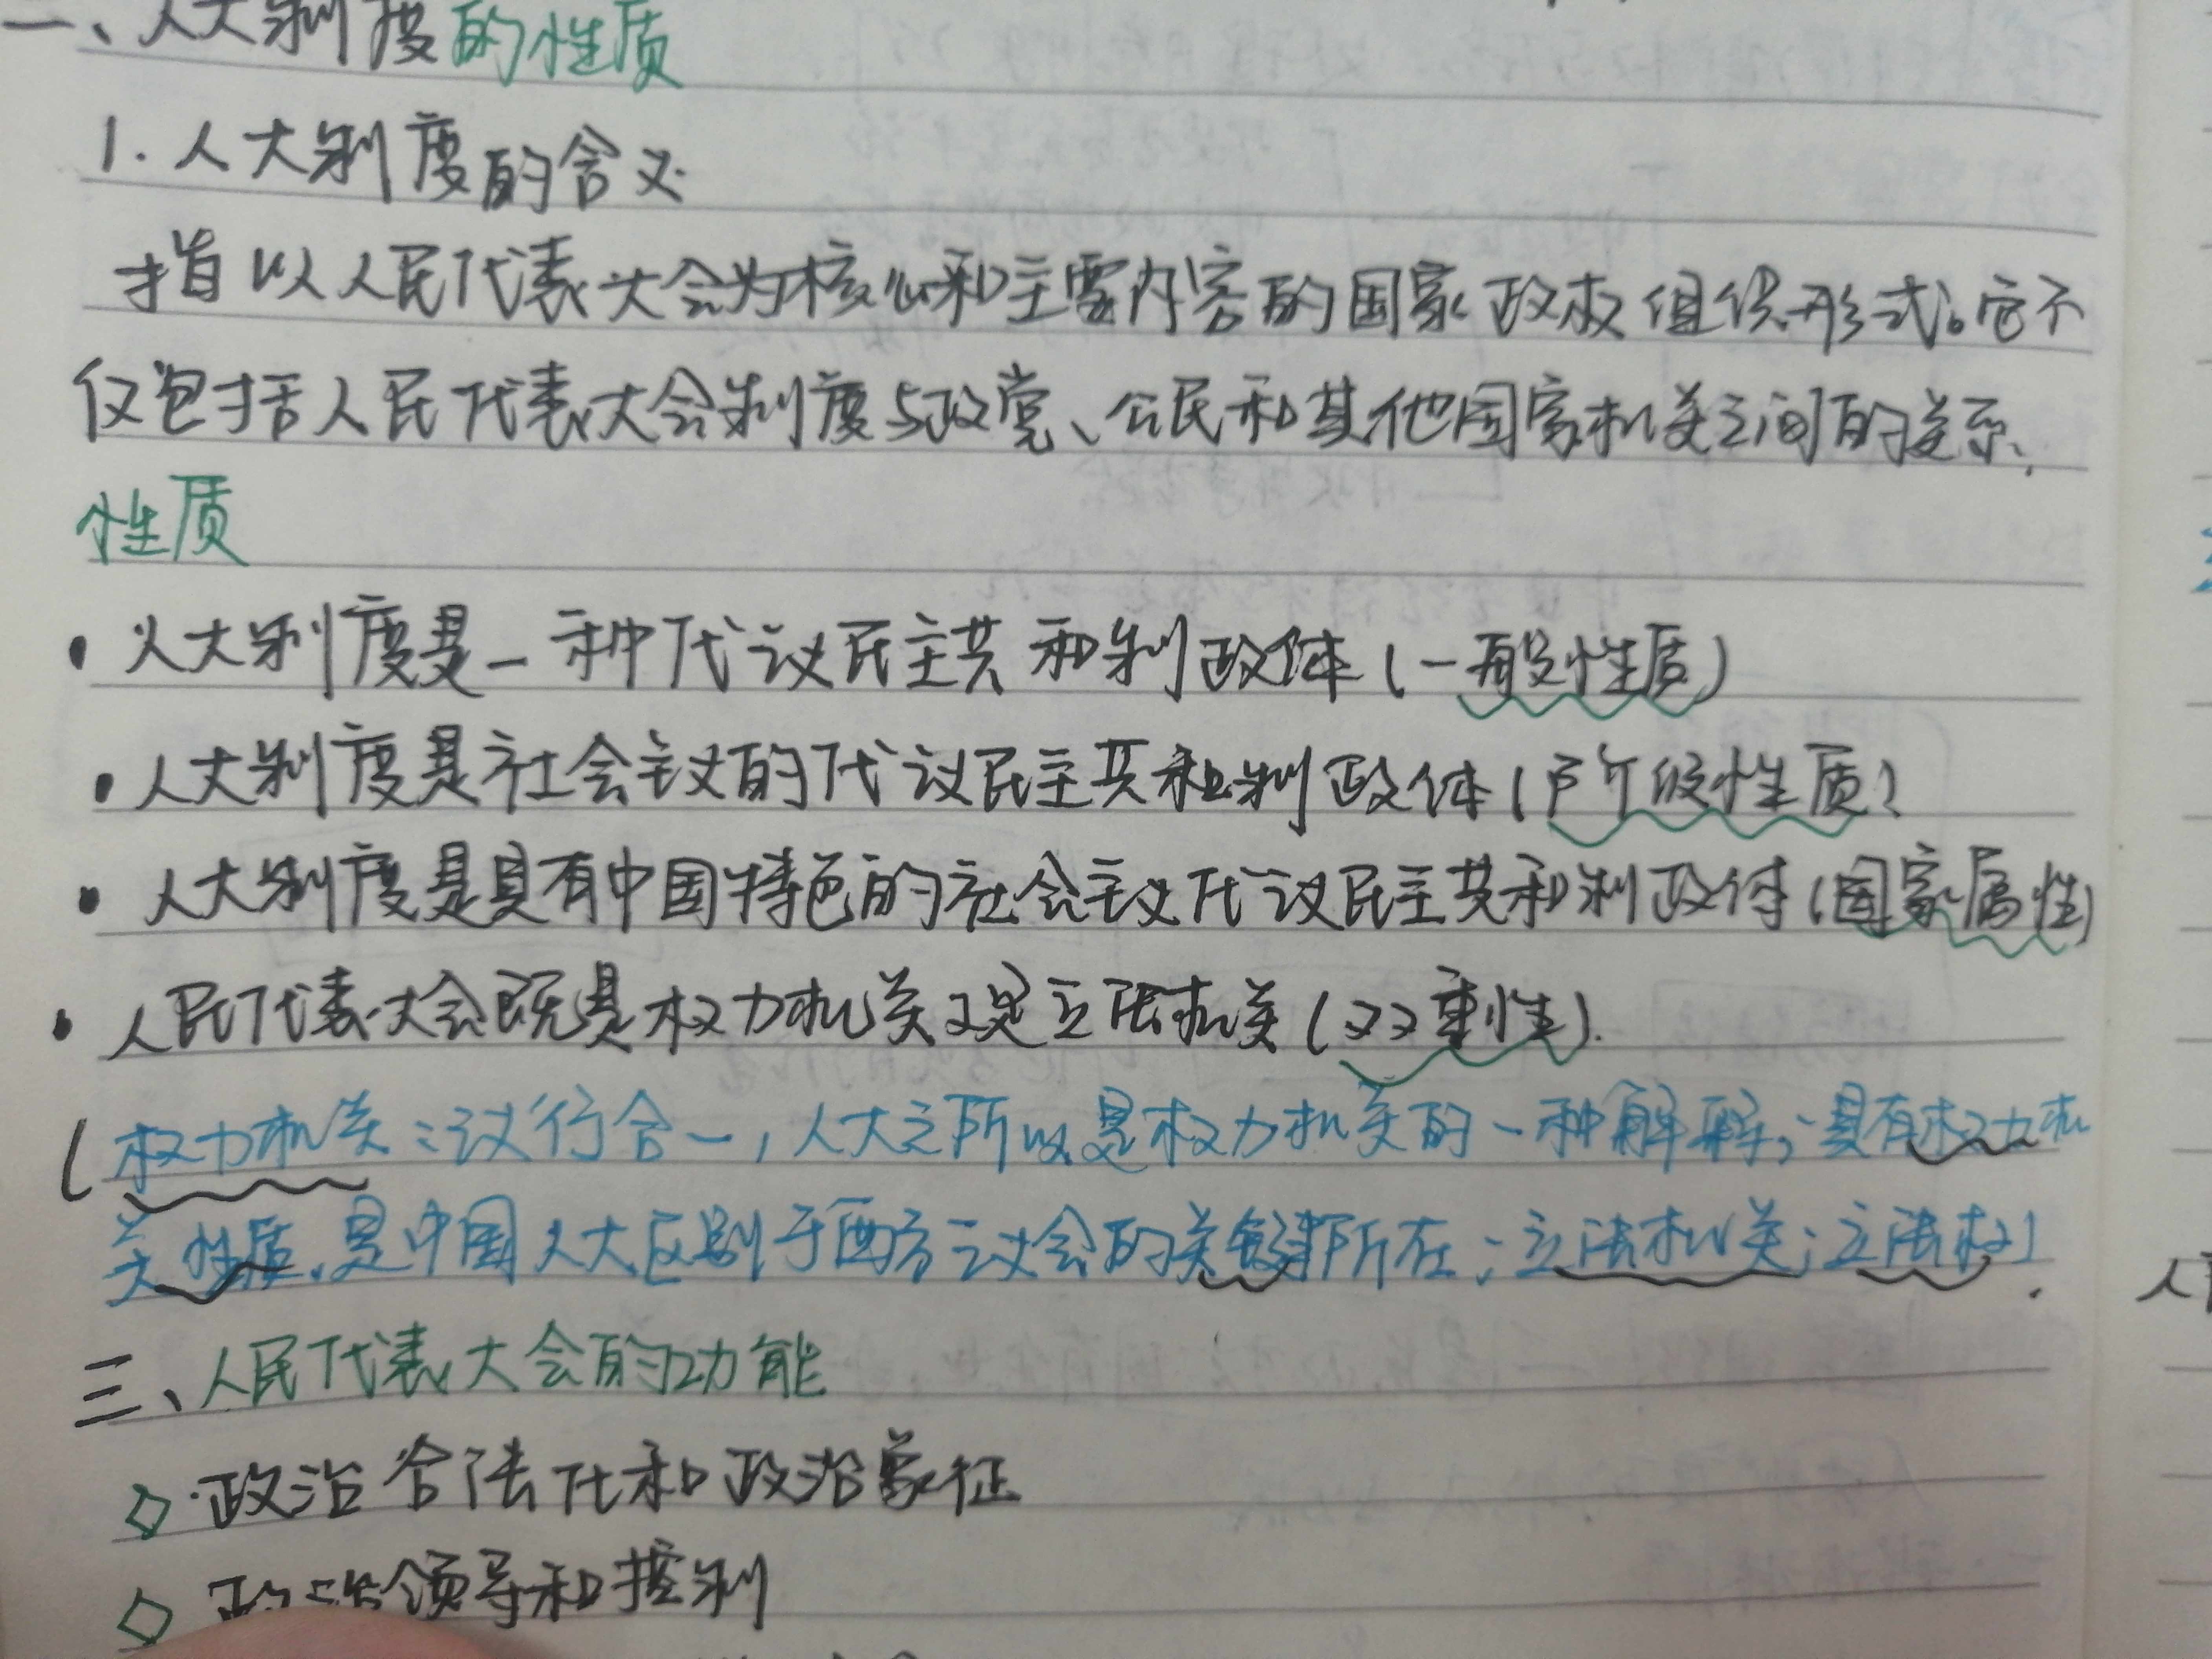 人大制度的性质
1. 人大制度的含义
指以人民代表大会为核心和主要内容的国家政权组织形式。它不
仅包括人民代表大会制度与政党、公民和其他国家机关之间的关系、
性质
• 人大制度是一种代议民主共和制政体(一般性质)
• 人大制度是社会主义的代议民主共和制政体(阶级性质)
• 人大制度是具有中国特色的社会主义代议民主共和制政体(国家属性)
• 人民代表大会既是权力机关又是立法机关(双重性).
(权力机关:议行合一,人大之所以是权力机关的一种解释;具有权力机
关性质,是中国人大区别于西方议会的关键所在;立法机关:立法权)
三、人民代表大会的功能
◇ 政治合法化和政治象征
◇ 政治领导和控制